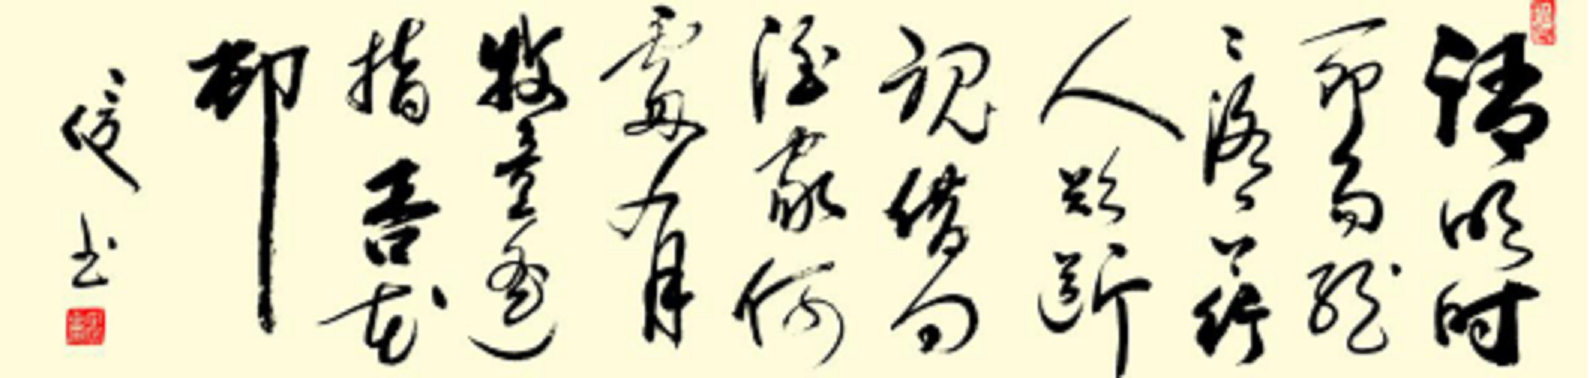 清明时
节雨纷
々路上行
人欲断
魂借问
酒家何
處有
牧童遥
指杏花
邨
书